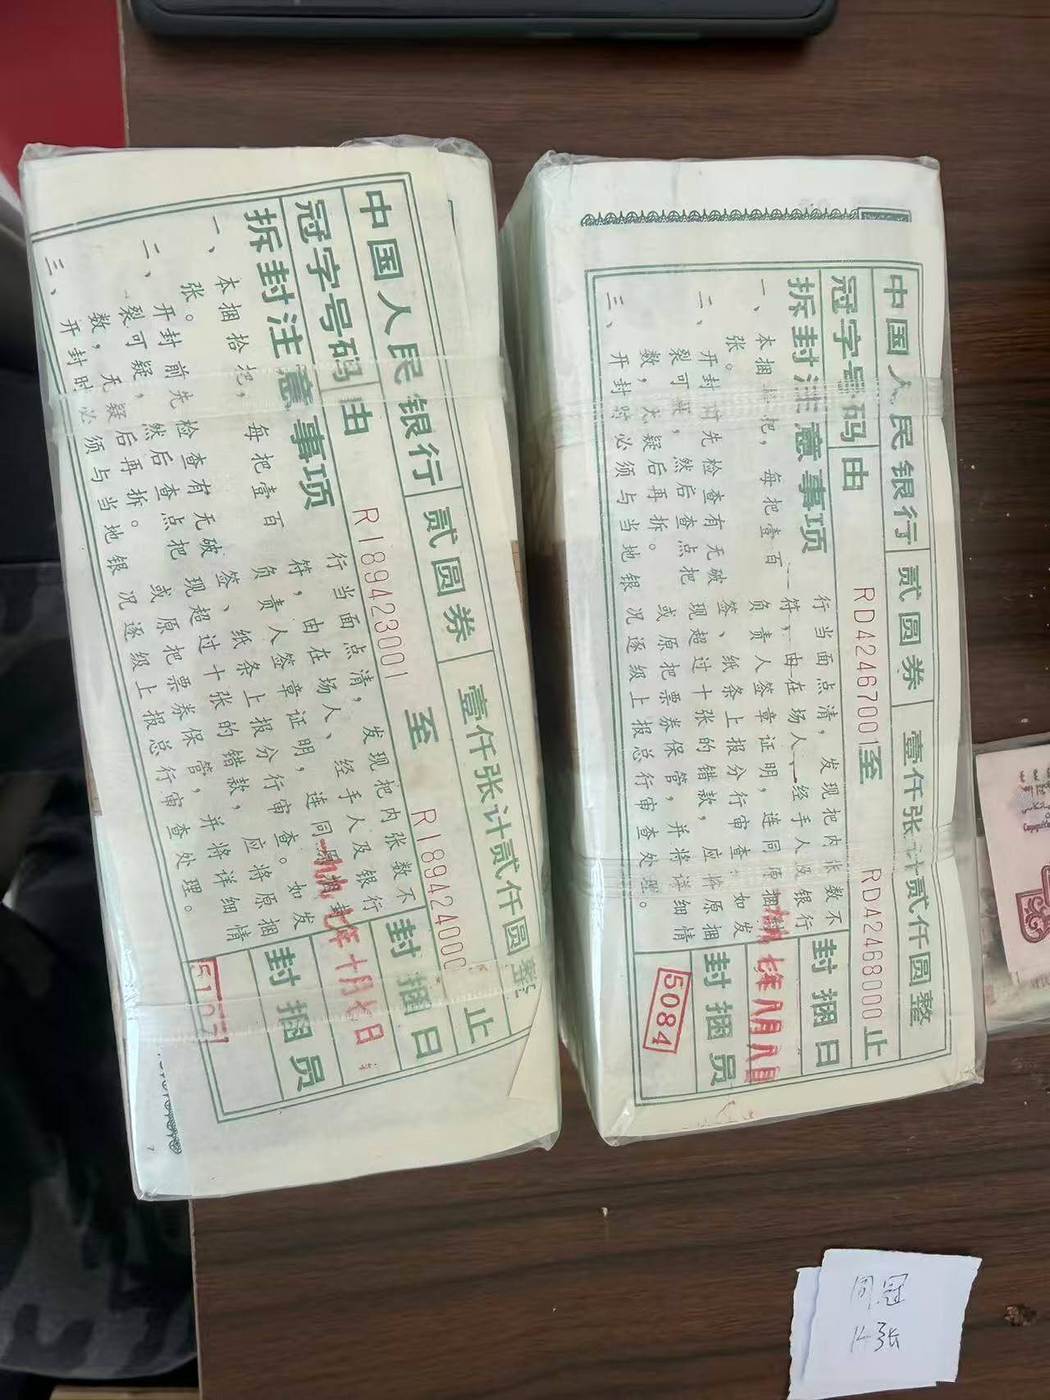 中国人民银行 贰圆券 壹仟张计贰仟圆整
冠字号码 由 RI89423001 至 RI89424000 止
拆封注意事项
一、本捆拾把,每把壹百张。
二、开封前先检查有无破裂可疑,然后查点把数,无疑后再拆。
三、开封时必须与当地银
行当面点清,发现把内张数不
符,由在场人、经手人及银行
负责人签章证明,连同原捆封
签、纸条上报分行审查。如发
现超过十张的错款,应将原捆
或原把票券保管,并将详细情
况逐级上报总行审查处理。
封捆日
七年十月七日
封捆员
5107
中国人民银行 贰圆券 壹仟张计贰仟圆整
冠字号码 由 RD42467001 至 RD42468000 止
拆封注意事项
一、本捆拾把,每把壹百张。
二、开封前先检查有无破裂可疑,然后查点把数,无疑后再拆。
三、开封时必须与当地银
行当面点清,发现把内张数不
符,由在场人、经手人及银行
负责人签章证明,连同原捆封
签、纸条上报分行审查。如发
现超过十张的错款,应将原捆
或原把票券保管,并将详细情
况逐级上报总行审查处理。
封捆日
七年八月八日
封捆员
5084
同冠
14张